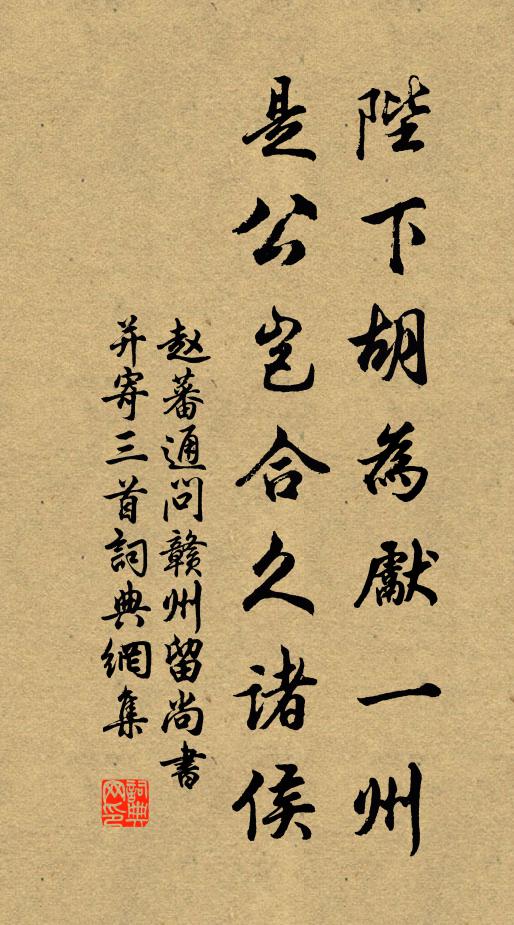 陛下胡為獻一州
是公岂合久诸侯
赵蕃通问赣州留尚書
并寄三首詞典網集
詞典网印